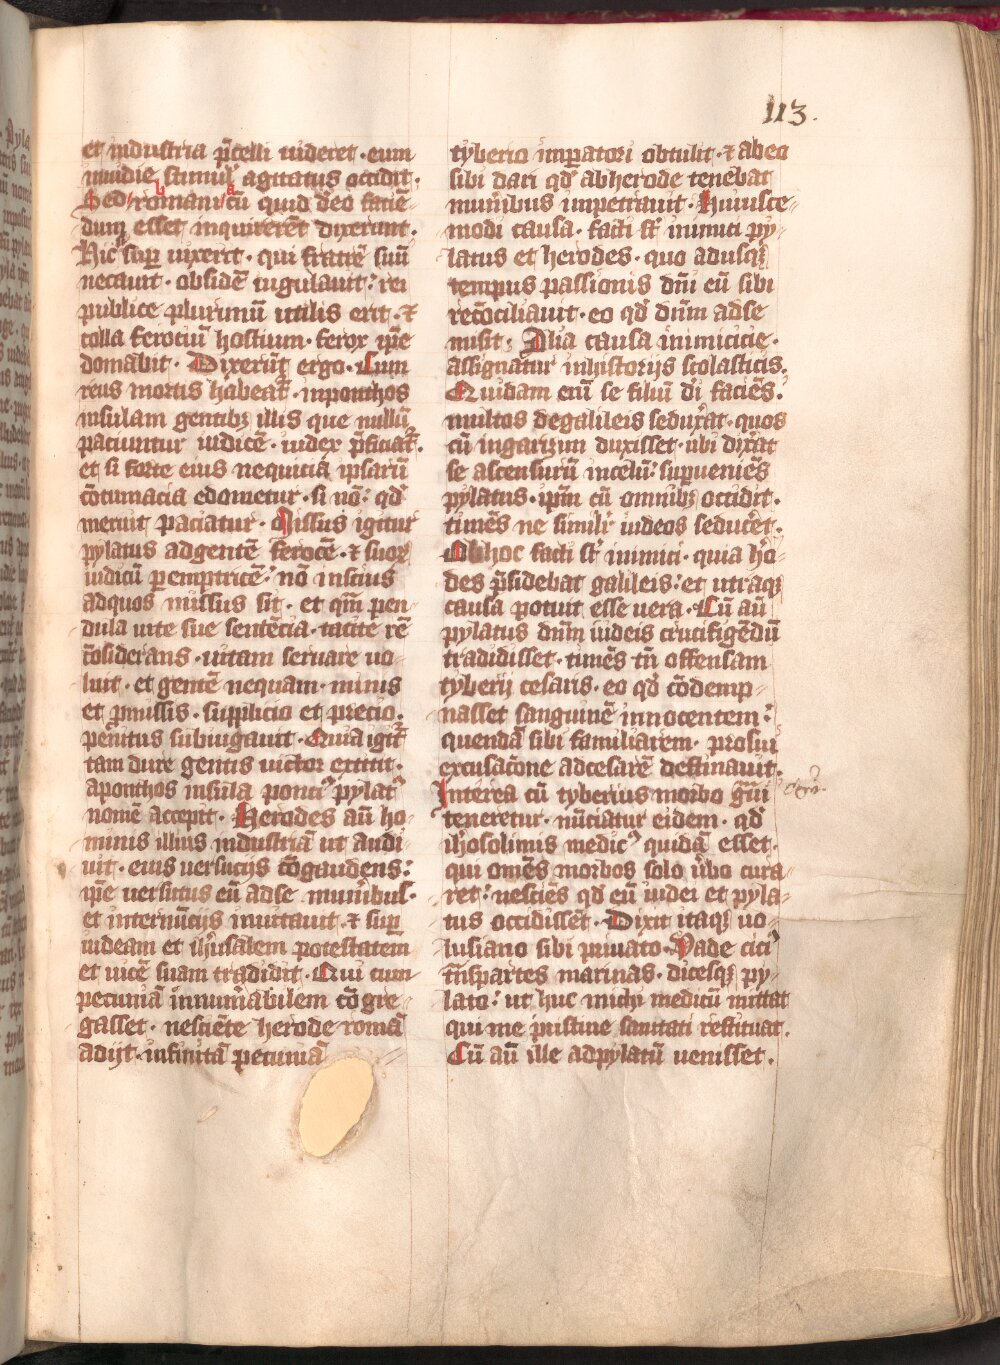 113.
et industria p̄celli uideret · eum
inuidie stimul᷒ agitatus occidit ·
Sed romani cū quid deo facie-
dum esset inquirerēt dixerunt ·
Hic sup̄ uixerit · qui fratrē suū
necauit · obsidē iugulauit : rei
publice plurimū utilis erit · ⁊
colla ferociū hostium · ferox ip̄e
domabit · Dixerūt ergo · Cum
reus mortis habeat᷑ · inponthos
insulam gentibꝫ illis que nullū
paciuntur iudicē · iudex p̄ficiat᷑ ·
et si forte eius nequicia ipsarū
cōtumacia edometur · si nō : qd̓
meruit paciatur · Missus igitur
pylatus adgentē ferocē · ⁊ suoꝝ
iudicū peremptricē : nō inscius
adquos missus sit · et qm̄ pen
dula uite sue sentēcia · tacite rē
cōsiderans · uitam seruare uo-
luit · et gentē nequam · minis
et p̄missis · supplicio et precio ·
penitus subiugauit · Quia igit᷑
tam dure gentis uictor extitit ·
aponthos insula ponci᷒ pylat᷒
nomē accepit · Herodes aū ho-
minis illius industriā ut audi-
uit · eius uersucijs cōgaudens :
ip̄e uersutus eū adse munibus ·
et internūcijs inuitauit · ⁊ sup̄
iudeam et ih̓rusalem potestatem
et uicē suam tradidit · Qui cum
pecuniā innum̓abilem cōgre-
gasset · nesciēte herode romā
adijt · infinitā pecuniā
tyberio imp̄atori obtulit · ⁊ abeo
sibi dari qd̓ abherode tenebat
mun̓ibus impetrauit · Huiusce-
modi causa · facti sūt inimici py-
latus et herodes · quo adusqꝫ
tempus passionis dn̄i eū sibi
recōciliauit · eo qd̓ dn̄m adse
misit · Alia causa inimicicie ·
assignatur inhistorijs scolasticis ·
Quidam eni̅ se filiū dī faciēs ·
multos degalileis sedux̓at · quos
cū ingarizim duxisset · ubi dix̓at
se ascensurū incelū : superueniēs
pylatus · ipm̄ cū omnibꝫ occidit ·
timēs ne simili᷑ iudeos seduc̓et ·
Obhoc facti sūt inimici · quia h̓o-
des p̄sidebat galileis : et utraqꝫ
causa potuit esse uera · Cū aū
pylatus dn̄m iudeis crucifigēdū
tradidisset · timēs tn̄ offensam
tyberij cesaris · eo qd̓ cōdemp-
nasset sanguinē innocentem :
quendā sibi familiarem · prosui
excusacōne adcesarē destinauit ·
Interea cū tyberius morbo g̓ui
teneretur · nūciatur eidem · qd̓
ih̓osolimis medic᷒ quidā esset ·
qui omēs morbos solo u̓bo cura-
ret : nesciēs qd̓ eū iudei et pyla-
tus occidissēt · Dixit itaqꝫ uo-
lusiano sibi priuato · Vade cici᷒
tn̄spartes marinas · dicesqꝫ py-
lato : ut huc michi medicū mittat
qui me pristine sanitati restituat ·
Cū aū ille adpylatū uenisset ·